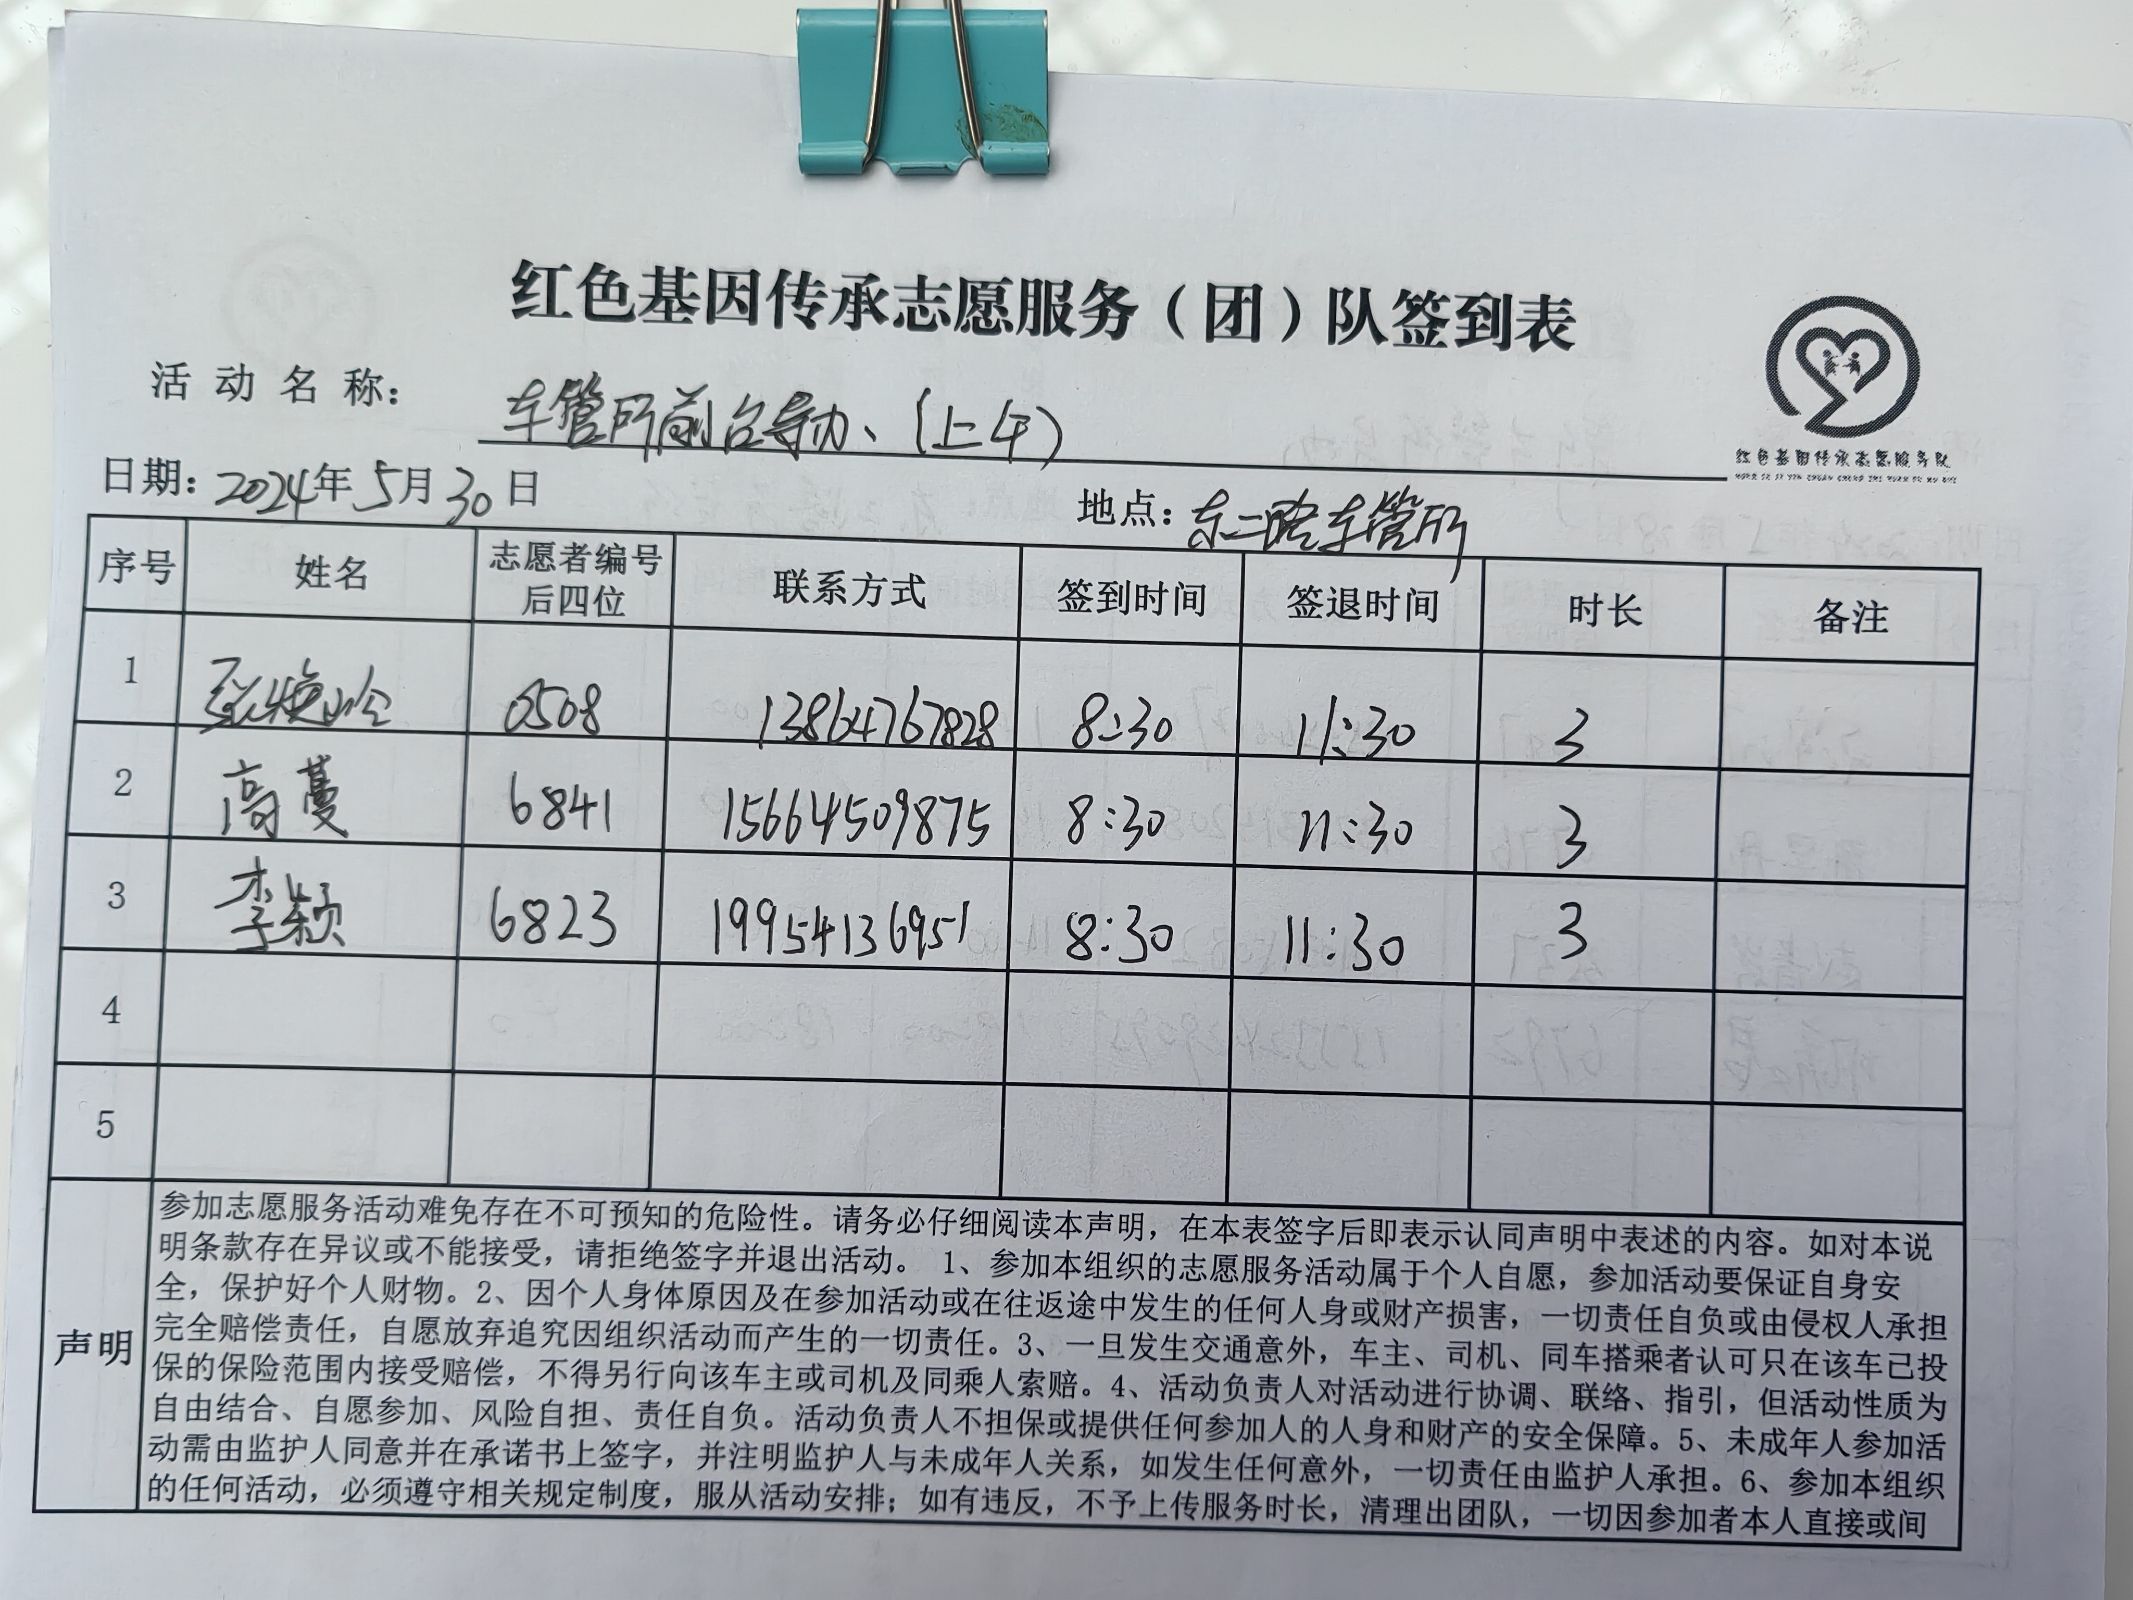 红色基因传承志愿服务（团）队签到表
活动名称：车管所前台导办、（上午）
红色基因传承志愿服务队
日期：2024年5月30日 地点：东二路车管所
序号 姓名 志愿者编号后四位 联系方式 签到时间 签退时间 时长 备注
1 0508 13864767828 8:30 11:30 3
2 高蔓 6841 15664509875 8:30 11:30 3
3 李颖 6823 19954136951 8:30 11:30 3
4
5
声明
参加志愿服务活动难免存在不可预知的危险性。请务必仔细阅读本声明，在本表签字后即表示认同声明中表述的内容。如对本说
明条款存在异议或不能接受，请拒绝签字并退出活动。 1、参加本组织的志愿服务活动属于个人自愿，参加活动要保证自身安
全，保护好个人财物。2、因个人身体原因及在参加活动或在往返途中发生的任何人身或财产损害，一切责任自负或由侵权人承担
完全赔偿责任，自愿放弃追究因组织活动而产生的一切责任。3、一旦发生交通意外，车主、司机、同车搭乘者认可只在该车已投
保的保险范围内接受赔偿，不得另行向该车主或司机及同乘人索赔。4、活动负责人对活动进行协调、联络、指引，但活动性质为
自由结合、自愿参加、风险自担、责任自负。活动负责人不担保或提供任何参加人的人身和财产的安全保障。5、未成年人参加活
动需由监护人同意并在承诺书上签字，并注明监护人与未成年人关系，如发生任何意外，一切责任由监护人承担。6、参加本组织
的任何活动，必须遵守相关规定制度，服从活动安排；如有违反，不予上传服务时长，清理出团队，一切因参加者本人直接或间